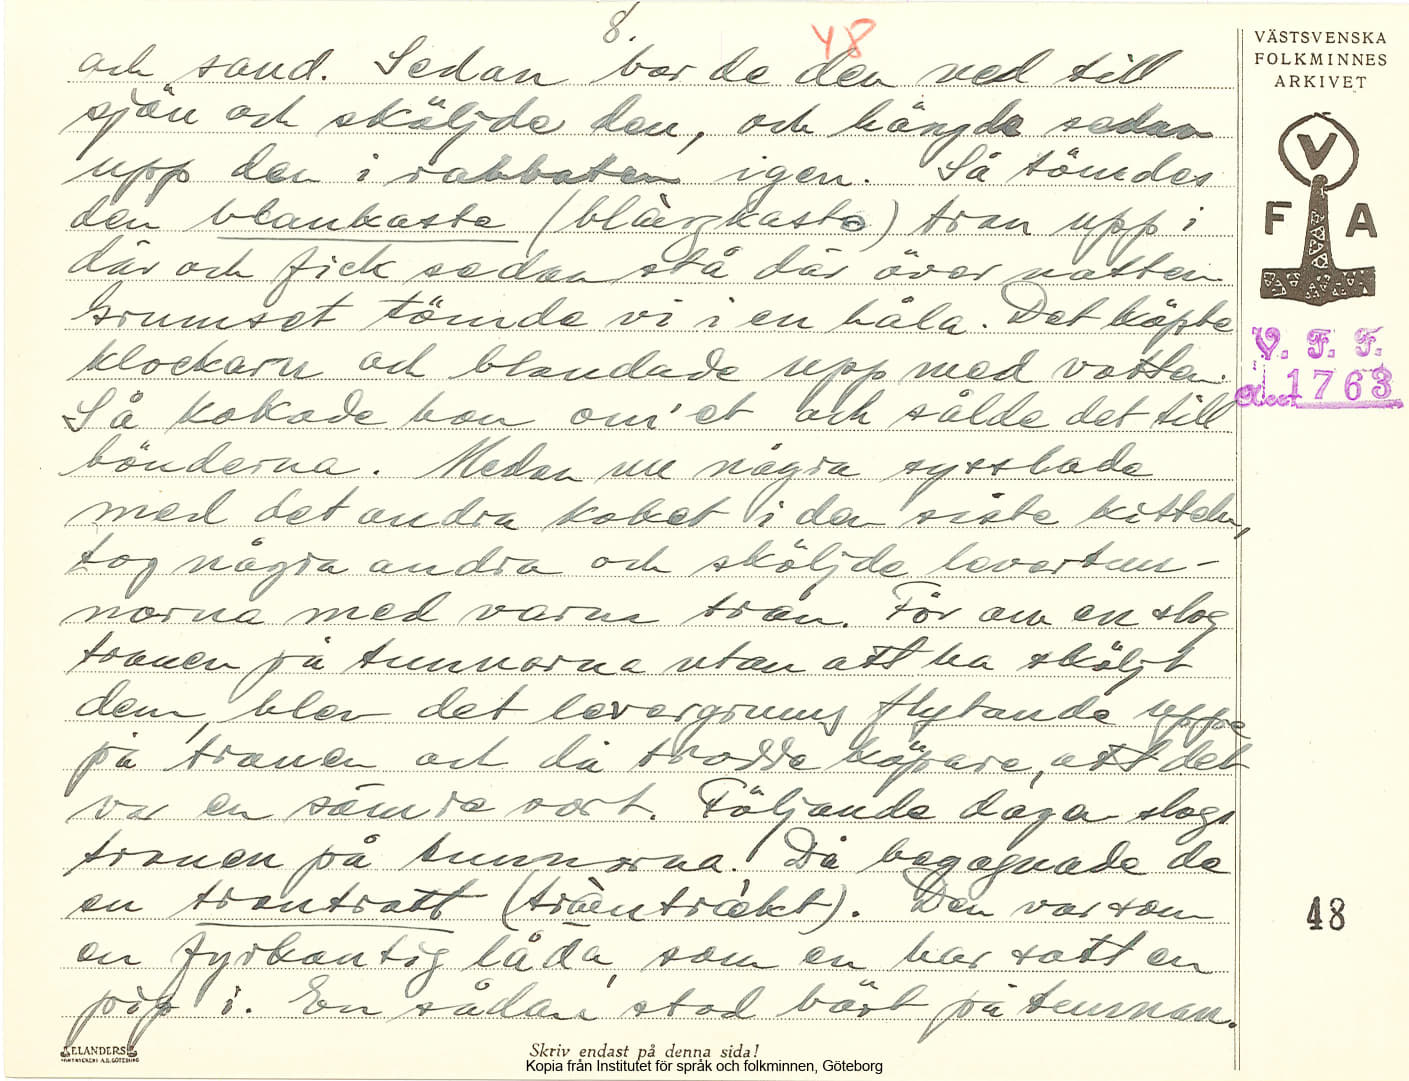 8.
48
och sand. Sedan bar de den ned till
sjön och sköljde den, och hängde sedan
upp den i rakbaten igen. Så tömdes
den blankaste (blàngkaste) tran upp i
där och fick sedan stå där över natten
Grumset tömde vi i en håla. Det köpte
klockarn och blandade upp med vatten.
Så kokade han om'et och sålde det till
bönderna. Medan nu några sysslade
med det andra koket i den siste kitteln,
tog några andra och sköljde levertun-
norna med varm tran. För om en slog
tranen på tunnorna utan att ha sköljt
dem, blev det levergrums flytande uppe
på tranen och då trodde köpare, att det
var en sämre sort. Följande dagen slogs
tranen på tunnorna. Då begagnade de
en trantratt (). Den var som
en fyrkantig låda, som en har satt en
pip i. En sådan stod bäst på tunnan.
VÄSTSVENSKA
FOLKMINNES
ARKIVET
V
F A
V. F. F.
d. 1763
48
ELANDERS
BOKTRYCKERI A.B. GÖTEBORG
Skriv endast på denna sida!
Kopia från Institutet för språk och folkminnen, Göteborg